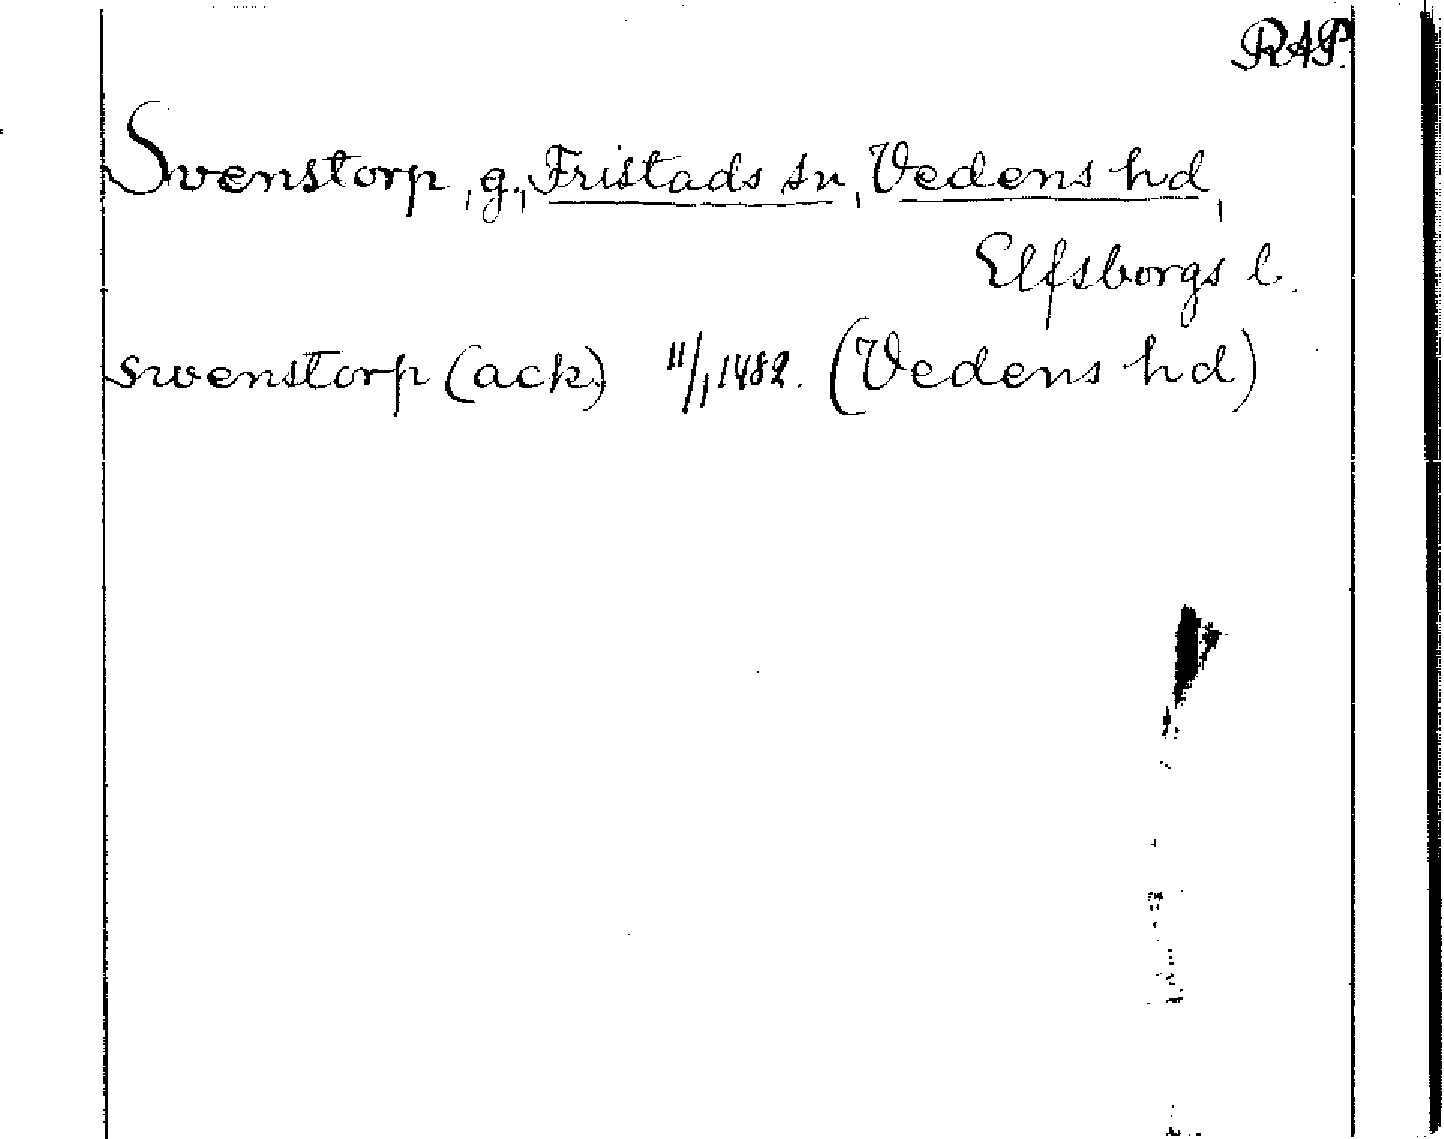 RAP.
Svenstorp, g., Fristads sn, Vedens hd,
Elfsborgs l.
swenstorp (ack) 11/1 1482. (Vedens hd)